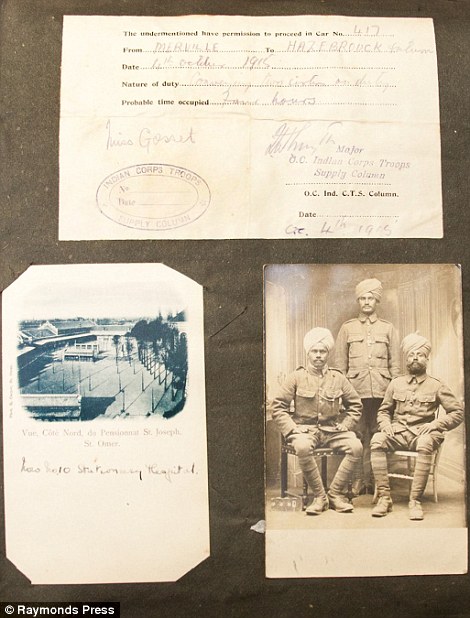 The undermentioned have permission to proceed in Car No. 417
From MERVILLE To HAZEBROUCK & return
Date 4th October 1915
Nature of duty on duty
Probable time occupied hours
Miss Gosset
Major
O.C. Indian Corps Troops
Supply Column
INDIAN CORPS TROOPS
No
Date
SUPPLY COLUMN
O.C. Ind. C.T.S. Column.
Date
Oc. 4th 1915
Vue, Côté Nord, du Pensionnat St. Joseph,
St. Omer.
No 10 Stationary Hospital.
© Raymonds Press